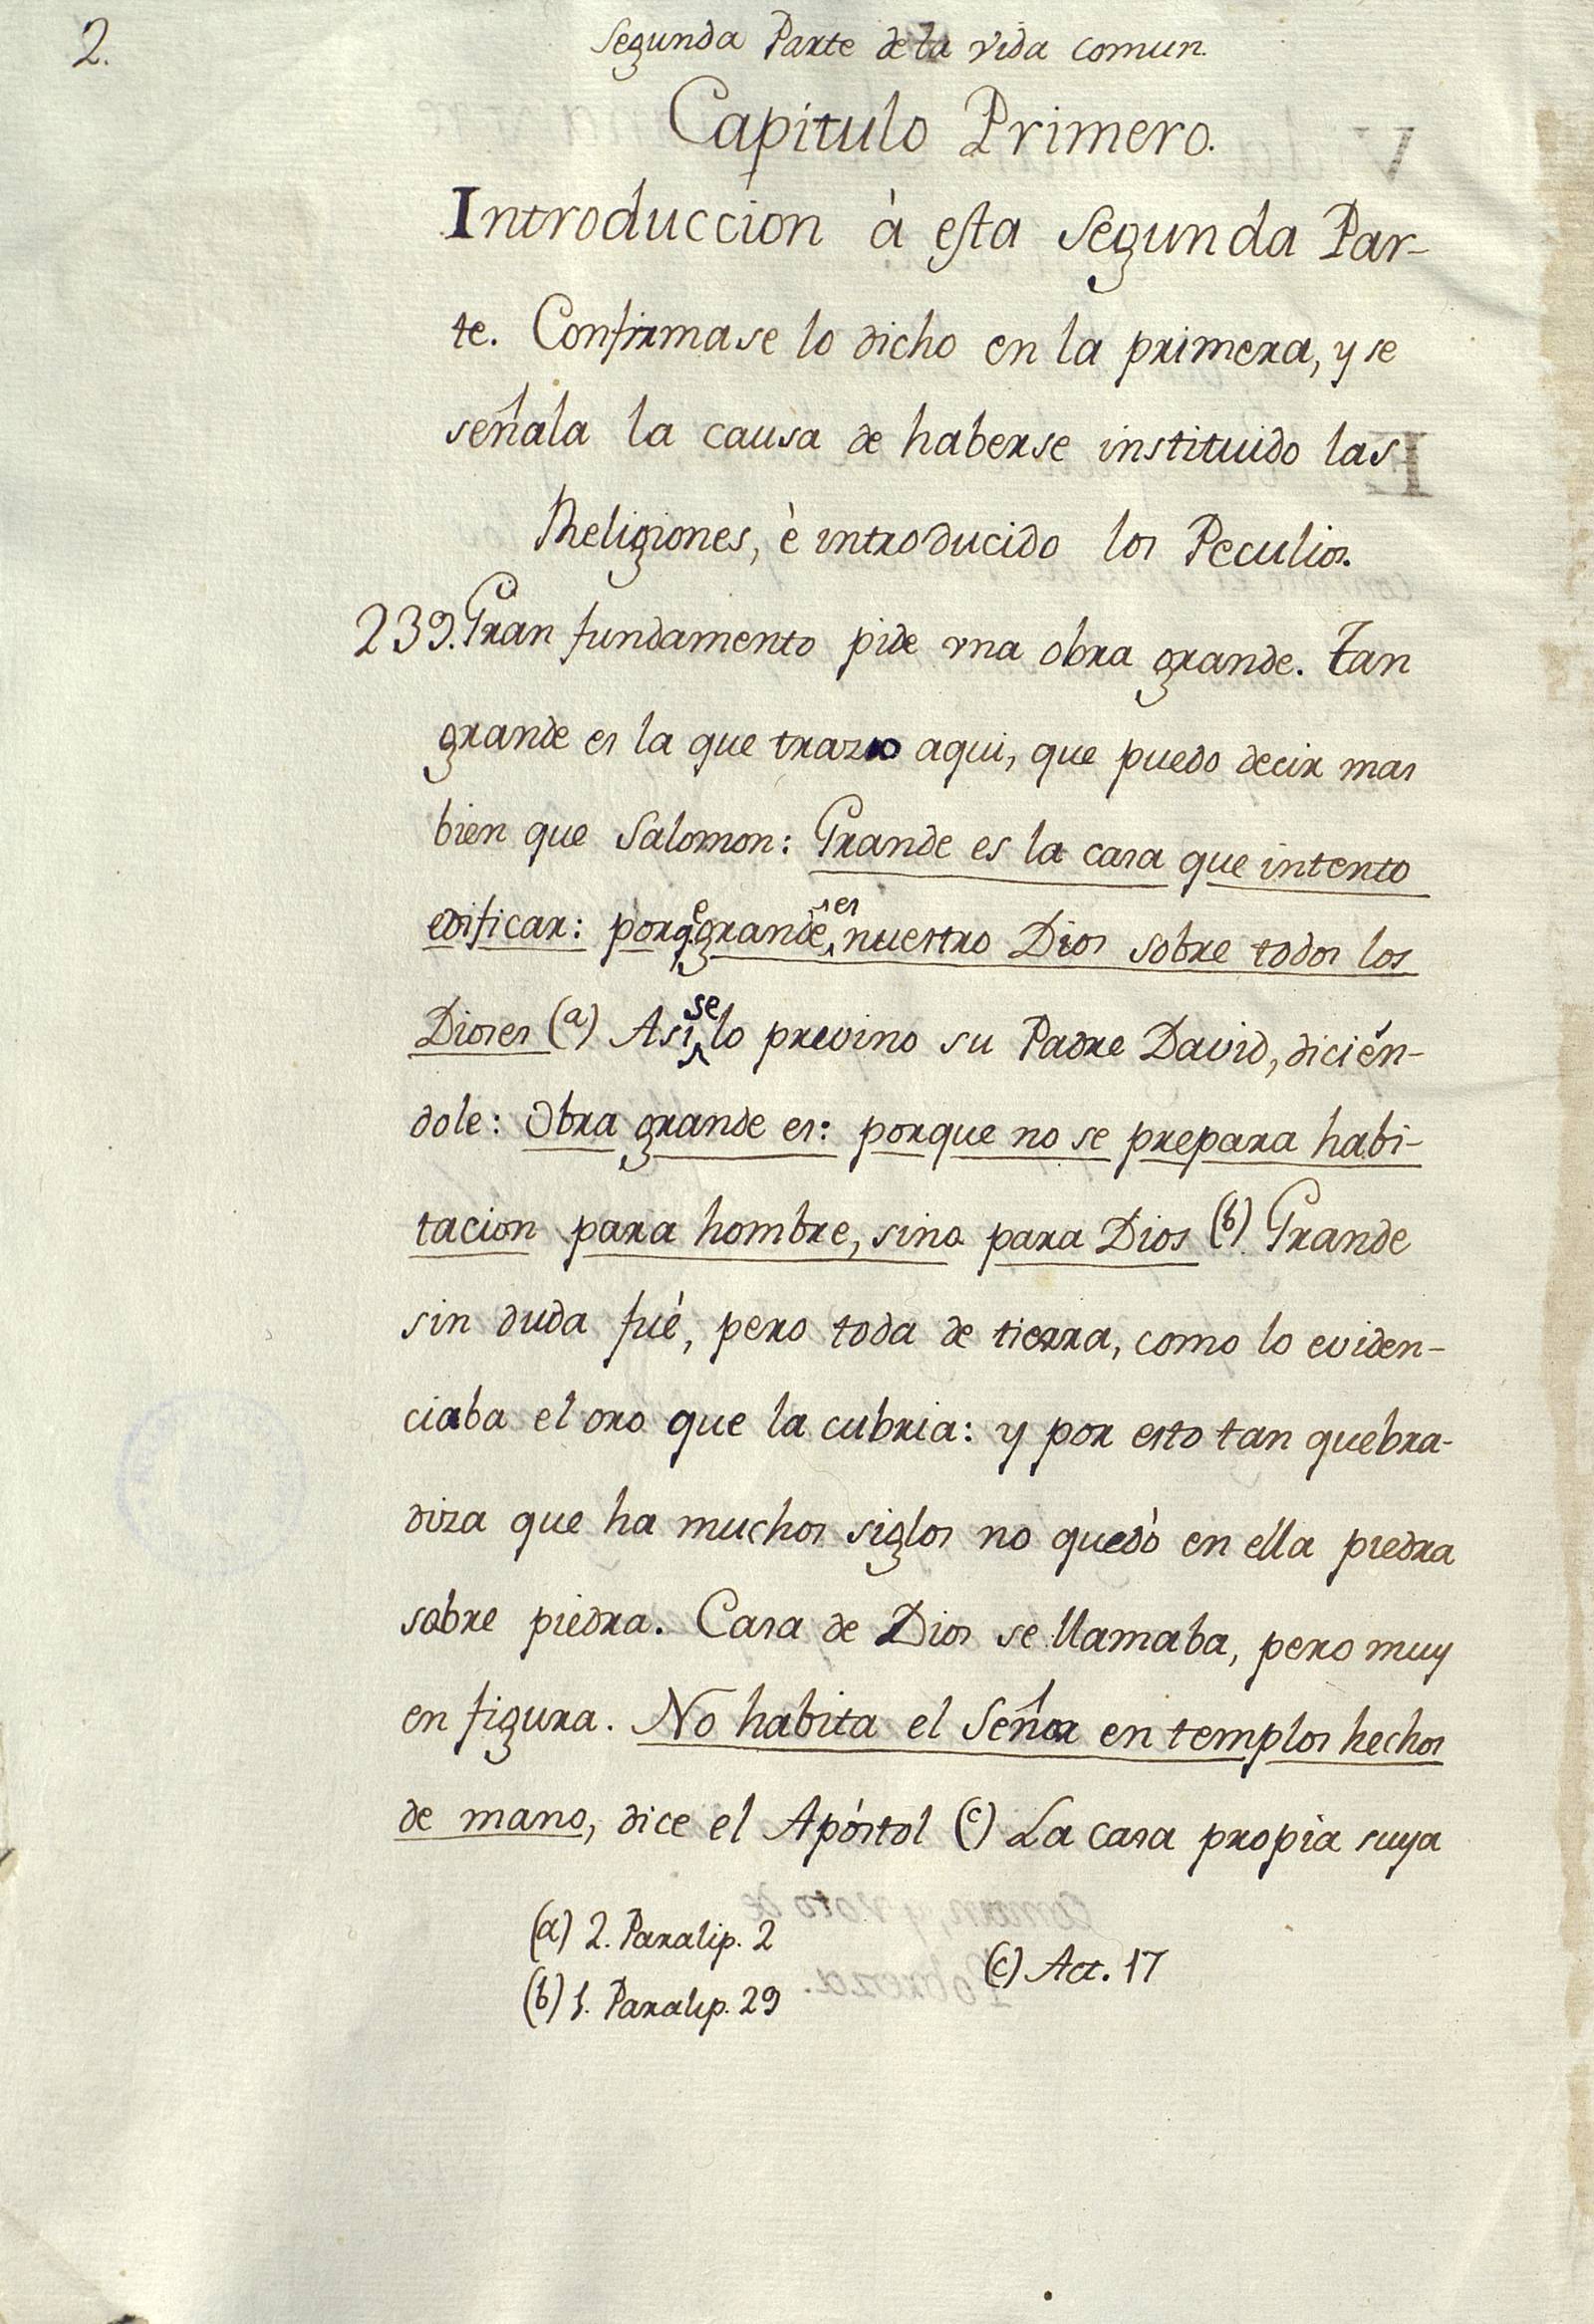 2.
Segunda Parte de la vida comun.
Capitulo Primero.
Introduccion à esta Segunda Par-
te. Confirmase lo dicho en la primera, y se
señala la causa de haberse instituido las
Religiones, è introducido los Peculios.
239. Gran fundamento pide vna obra grande. Tan
grande es la que trazo aqui, que puedo decir mas
bien que Salomon: Grande es la casa que intento
edificar: porq.e grande es nuestro Dios sobre todos los
Dioses (a) Asi se lo previno su Padre David, dicién-
dole: Obra grande es: porque no se prepara habi-
tacion para hombre, sino para Dios (b) Grande
sin duda fuè, pero toda de tierra, como lo eviden-
ciaba el oro que la cubria: y por esto tan quebra-
diza que ha muchos siglos no quedò en ella piedra
sobre piedra. Casa de Dios se llamaba, pero muy
en figura. No habita el Señor en templos hechos
de mano, dice el Apóstol (c) La casa propia suya
(a) 2. Paralip. 2
(b) 1. Paralip. 29
(c) Act. 17